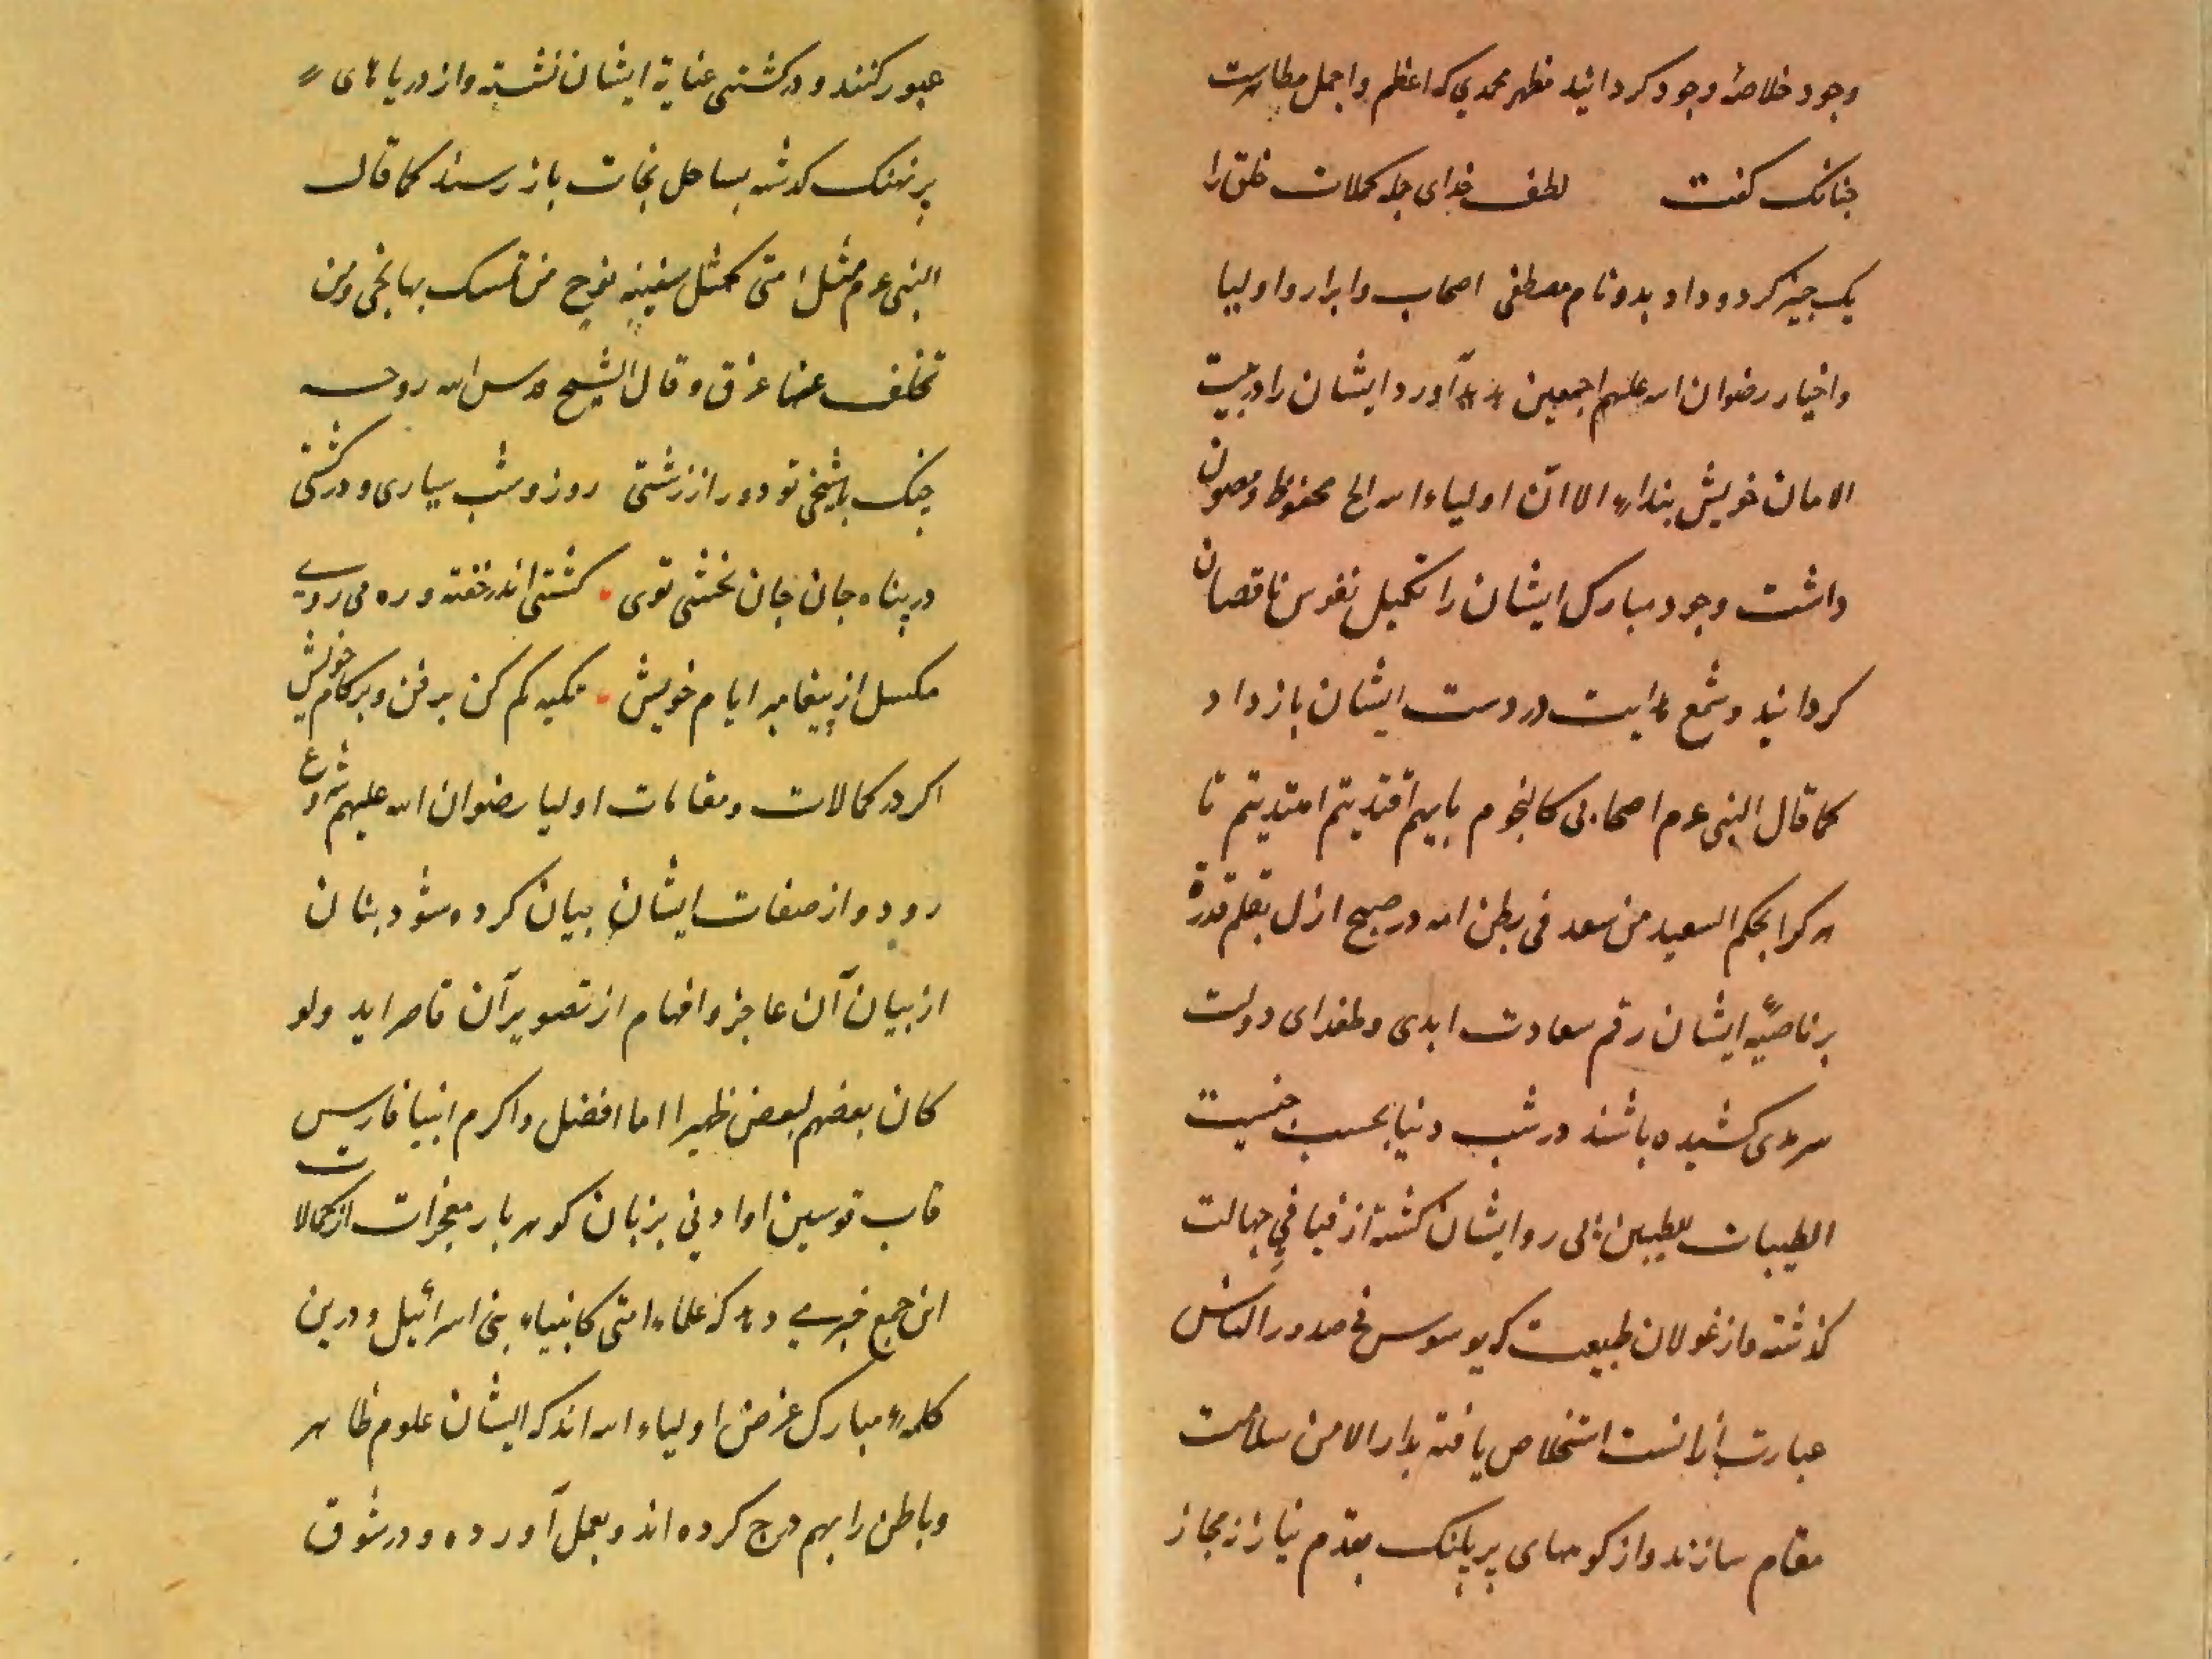 وجود خلاصهٔ وجود کردانید مظهر محمدی که اعظم و اجمل مظاهرست
چنانک کفت لطف خدای جمله کمالات خلق را
یک چیز کرد و داد بدو نام مصطفی اصحاب و ابرار و اولیا
و اخیار رضوان الله علیهم اجمعین آورد ایشان را در بیت
الامان خویش بنداء الا ان اولیاء الله الخ محفوظ و مصون
داشت وجود مبارک ایشان را تکمیل نفوس ناقصان
کردانید و شمع هدایت در دست ایشان باز داد
کما قال النبی عم اصحابی کالنجوم بایهم اقتدیتم اهتدیتم تا
هر کرا بحکم السعید من سعد فی بطن امه در صبح ازل بقلم قدرة
بر ناصیهٔ ایشان رقم سعادت ابدی و طغرای دولت
سرمدی کشیده باشند در شب دنیا بحسب جنسیت
الطیبات للطیبین پی رو ایشان کشته از فیافی جهالت
گذشته و از غولان طبیعت که یوسوس فی صدور الناس
عبارت از انست استخلاص یافته بدار الامن سلامت
مقام سازند و از کوههای پر پلنک بقدم نیاز از مجاز
عبور کنند و در کشتی عنایة ایشان نشسته و از دریاهای
پر نهنک کذشته بساحل نجات باز رسند کما قال
النبی عم مثل امتی کمثل سفینه نوح من تمسک بها نجی و من
تخلف عنها غرق و قال الشیخ قدس الله روحه
چونک باشیخی تو دور از زشتی روز و شب سیاری و در کشتی
در پناه جان جان بخشی توی کشتی اندر خفته و ره می روی
مکسل از پیغامبر ایام خویش تکیه کم کن بر فن و بر کام خویش
اکر در کمالات و مقامات اولیا رضوان الله علیهم شروع
رود و از صفات ایشان بیان کرده شود بنان
از بیان آن عاجز و افهام از تصویر آن قاصر اید ولو
کان بعضهم لبعض ظهیرا اما افضل و اکرم انبیا فارس
قاب قوسین او ادنی بزبان کوهر بار معجزات از کمالات
این جمع خبری داد که علماء امتی کانبیاء بنی اسرائیل و درین
کلمهٔ مبارک غرض اولیاء الله اند که ایشان علوم ظاهر
و باطن را بهم درج کرده اند و بعمل آورده و در شوق